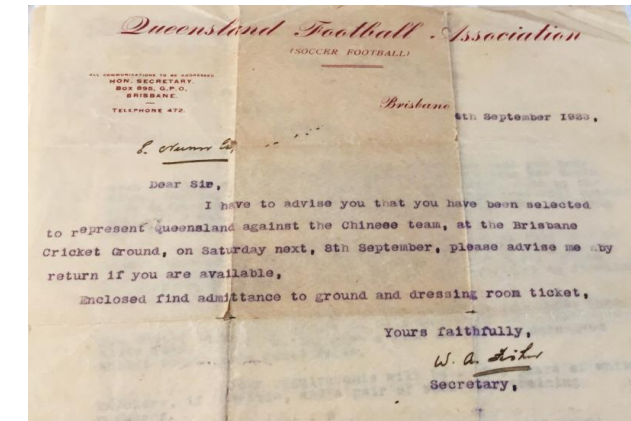 Queensland Football Association
(SOCCER FOOTBALL)
ALL COMMUNICATIONS TO BE ADDRESSED
HON. SECRETARY.
BOX 895, G.P.O.
BRISBANE.
TELEPHONE 472.
Brisbane
th September 1923,
Dear Sir,
I have to advise you that you have been selected
to represent Queensland against the Chinese team, at the Brisbane
Cricket Ground, on Saturday next, 8th September, please advise me by
return if you are available,
Enclosed find admittance to ground and dressing room ticket,
Yours faithfully,
W. A. Fisher
Secretary,